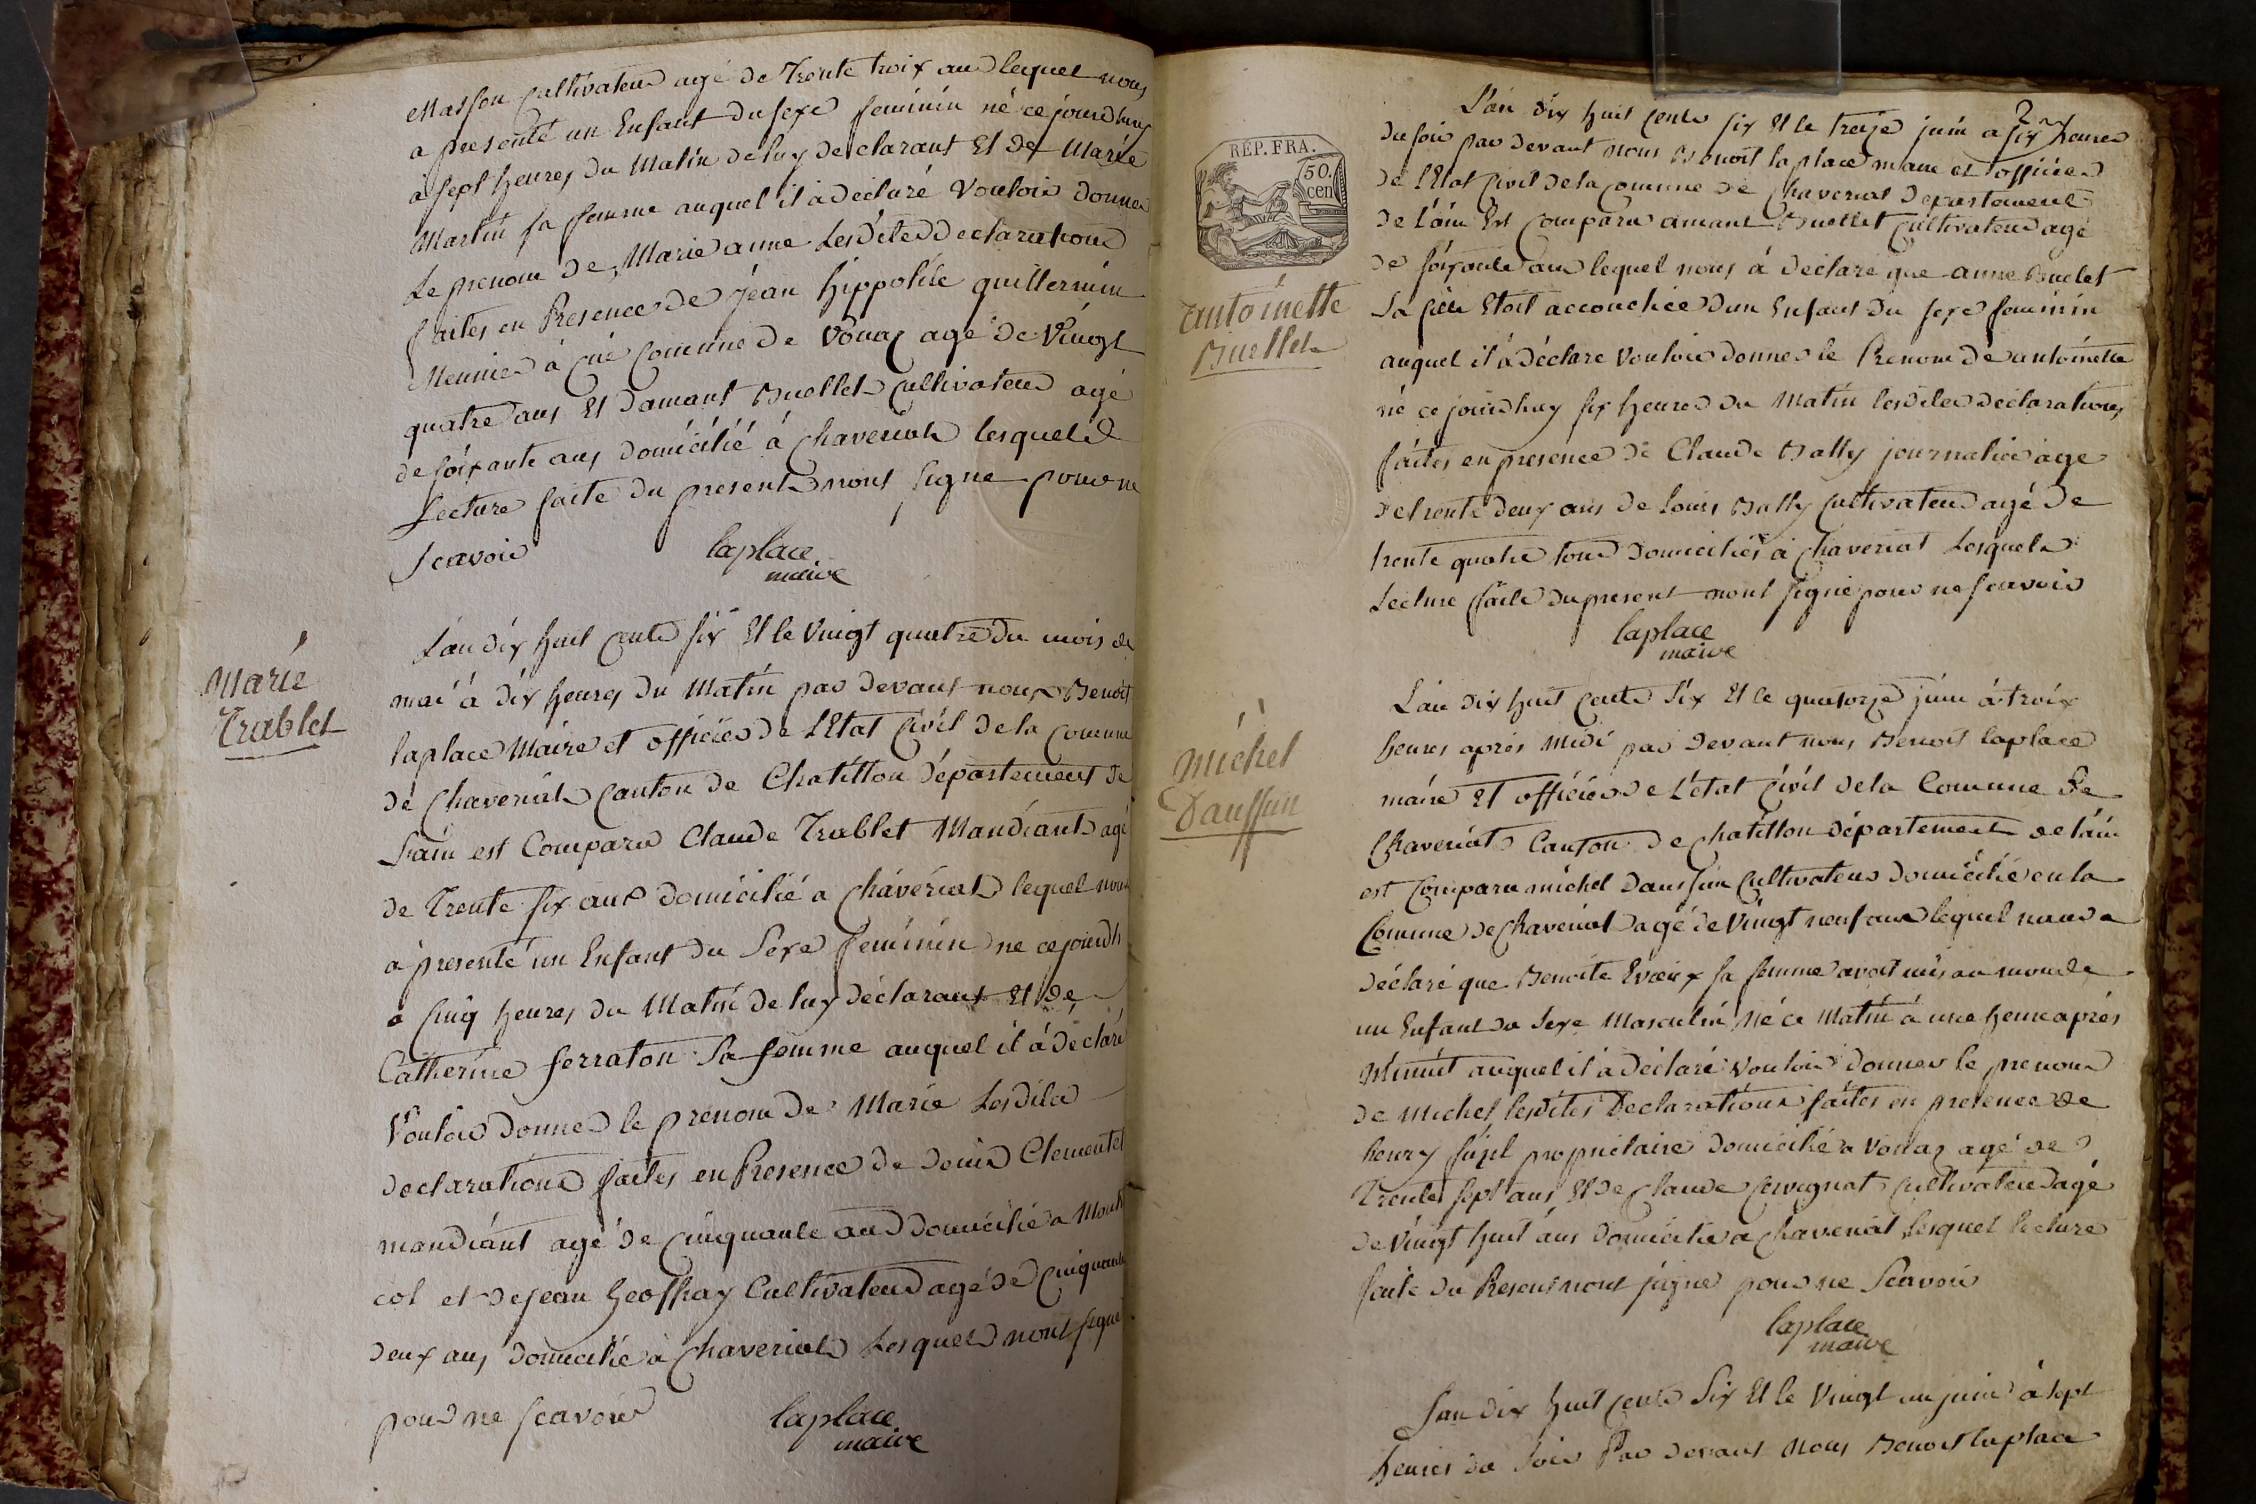 Masson Cultivateur agé de Trente troix ans lequel nous
a presenté un Enfant du sexe feminin né ce jourdhuy
à sept heures du Matin de luy declarant Et de Marie
Martin sa femme auquel il à déclaré Vouloir donner
Le prenom de Marie anne Lesdites declarations
faites en Presence de jéan hippolite quillermin
Meunier à Cué Comune de Vonaz agé de Vingt
quatre ans Et damant Buellet Cultivateur agé
de soixante ans domicilié à Chaveriat lesquels
Lecture faite du present nont signe pour ne
scavoir
laplace
maire
Marie
Trablet
L'an dix huit cents six Et le Vingt quatre du mois de
mai à dix heures du Matin par devant nous Benoit
laplace Maire et officier de L'Etat Civil de la Comune
de Chaveriat Canton de Chatillon département de
L'ain est Comparu Claude Trablet Mandiant agé
de Trente six ans domicilié a Chavériat lequel nous
à presenté un Enfant du Sexe feminin ne ce jourdh
a Cinq heures du Matin de luy déclarant Et de
Catherine ferraton Sa femme auquel il à déclaré
Vouloir donner le prenom de Marie Lesdites
declarations faites en Presence de denis Clementet
mandiant agé de Cinquante ans domicilié a Mont
col et de jean Geoffray Cultivateur agé de Cinquante
deux ans domicilié à Chaveriat Lesquels nont signé
pour ne scavoir
laplace
maire
RÉP. FRA.
50.
cen
Antoinette
Buellet
L'an dix huit cents six Et le treize juin a six heures
du soir par devant nous Benoit laplace maire et officier
de L'Etat Civil de la Comune de Chaveriat Departement
de L'ain Est Comparu amant Buellet Cultivateur agé
de soixante ans lequel nous à déclaré que anne Buelet
Sa fille Etoit accouchée dun Enfant du sexe feminin
auquel il à déclaré Vouloir donner le Prenom de antoinette
né ce jourdhuy six heures du Matin lesdites déclarations
faites en presence de Claude Bally journalier agé
de trente deux ans de Louis Bally Cultivateur agé de
trente quatre tous domiciliés à Chaveriat Lesquels
Lecture faite du present nont signé pour ne scavoir
laplace
maire
Michel
Daussun
L'an dix huit cents Six Et le quatorze juin à troix
heures après Midi par devant nous Benoit laplace
maire Et officier de L'état Civil de la Comune de
Chaveriat Canton de Chatillon département de l'ain
est Comparu michel Daussun Cultivateur domicilié en la
Comune de Chaveriat agé de Vingt neuf ans lequel nous a
déclaré que Benoite Evieux sa femme avoit mis au monde
un Enfant du Sexe Masculin Né ce Matin à une heure après
Minuit auquel il à déclaré Vouloir donner le prenom
de Michel lesdites declarations faites en presence de
henry propriétaire domicilié a Vonaz agé de
Trente sept ans Et de Claude Cervignat Cultivateur agé
de Vingt huit ans domicilié a Chaveriat lesquel lecture
faite du Present nont signe pour ne Scavoir
laplace
maire
L'an dix huit cents Six Et le Vingt un juin à sept
heures du Soir Par devant Nous Benoit laplace